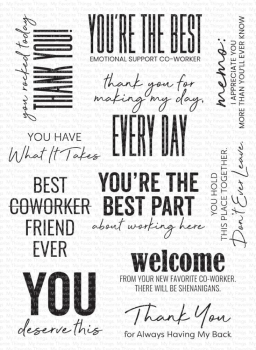 you rocked today
THANK YOU!
YOU'RE THE BEST
EMOTIONAL SUPPORT CO-WORKER
thank you for
making my day,
EVERY DAY
memo:
I APPRECIATE YOU
MORE THAN YOU'LL EVER KNOW
YOU HAVE
What It Takes
BEST
COWORKER
FRIEND
EVER
YOU'RE THE
BEST PART
about working here
YOU HOLD
THIS PLACE TOGETHER.
Don't Ever Leave.
YOU
deserve this
welcome
FROM YOUR NEW FAVORITE CO-WORKER.
THERE WILL BE SHENANIGANS.
Thank You
for Always Having My Back.